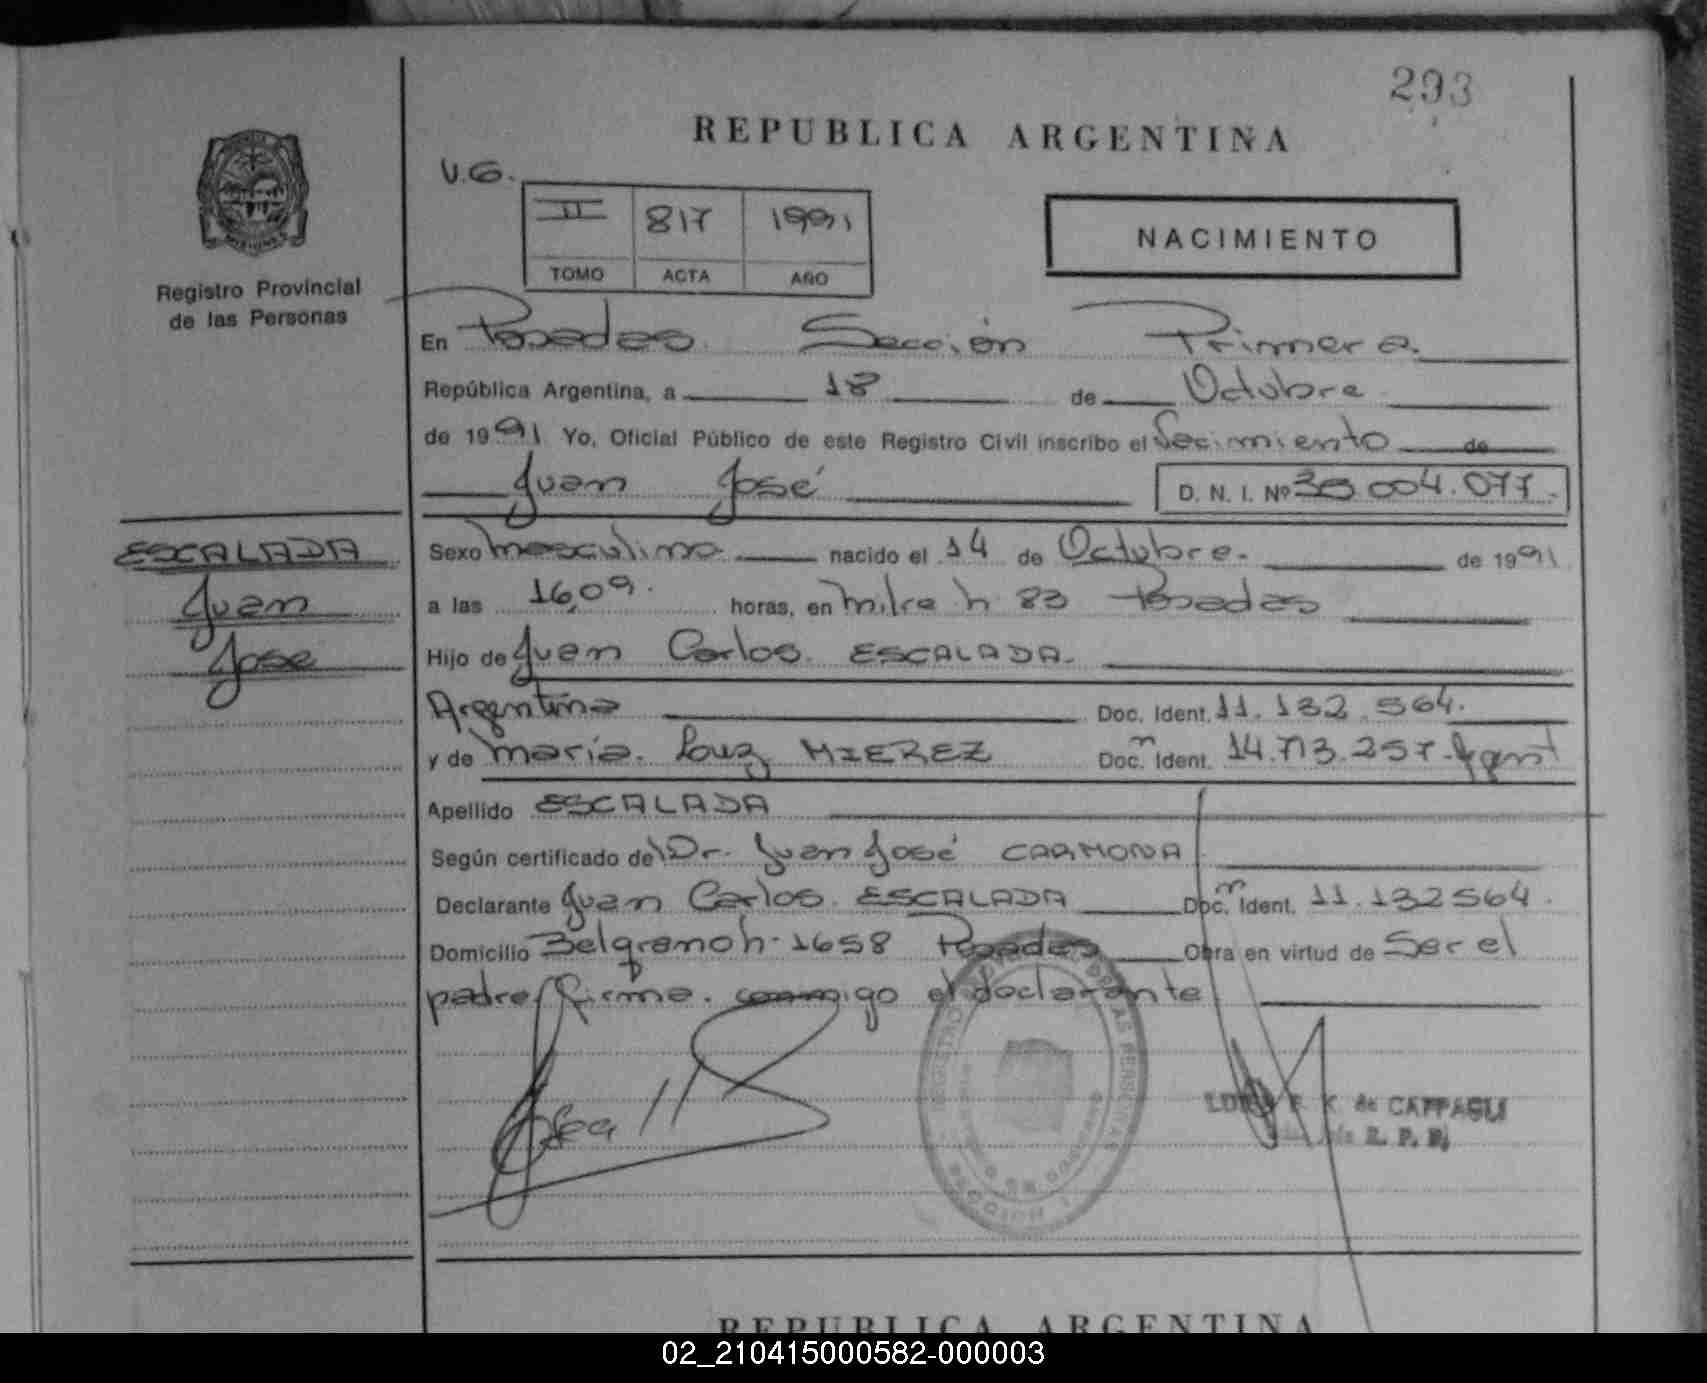 293
REPUBLICA ARGENTINA
V.G.
II 817 1991
TOMO ACTA AÑO
NACIMIENTO
MISIONES
Registro Provincial
de las Personas
En Posadas Sección Primera
República Argentina, a 18 de Octubre
de 1991 Yo, Oficial Público de este Registro Civil inscribo el Nacimiento de
Juan José D. N. I. Nº 36.004.077.
ESCALADA
Juan
Jose
Sexo Masculino nacido el 14 de Octubre. de 1991
a las 16,09. horas, en Mitre h 83 Posadas
Hijo de Juan Carlos ESCALADA.
Argentino Doc. Ident. 11.132.564.
y de María Luz MIEREZ Doc. Ident. 14.713.257. Argent
Apellido ESCALADA
Según certificado del Dr. Juan José CARMONA
Declarante Juan Carlos ESCALADA Doc. Ident. 11.132564.
Domicilio Belgrano h. 1658 Posadas Obra en virtud de Ser el
padre, firma conmigo el declarante
de CAFFASU
R. P. P.
SECCION 1
REPUBLICA ARGENTINA
02_210415000582-000003